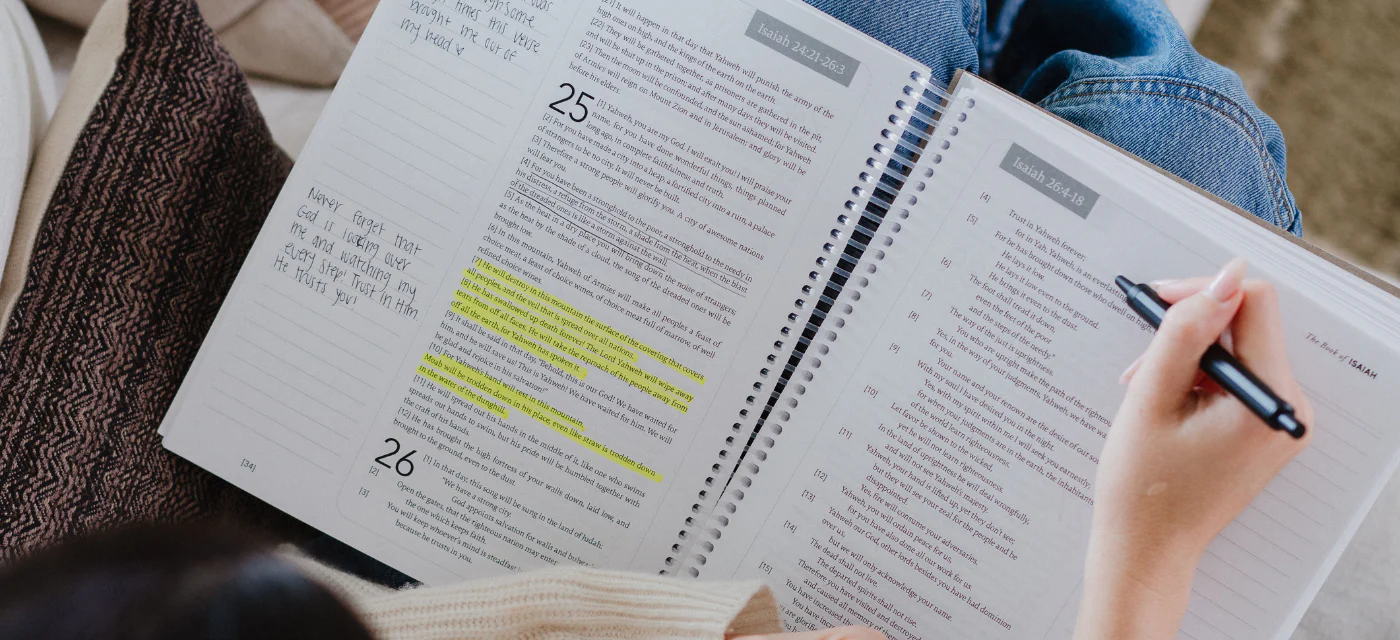 brought me out of
my head
Never forget that
God is looking over
me and watching my
every step! Trust in Him
He trusts you!
[34]
Isaiah 24:21-26:3
It will happen in that day that Yahweh will punish the army of the
high ones on high, and the kings of the earth on the earth.
[22] They will be gathered together, as prisoners are gathered in the pit,
and will be shut up in the prison; and after many days they will be visited.
[23] Then the moon will be confounded, and the sun ashamed; for Yahweh
of Armies will reign on Mount Zion and in Jerusalem; and glory will be
before his elders.
25
[1] Yahweh, you are my God. I will exalt you! I will praise your
name, for you have done wonderful things, things planned
long ago, in complete faithfulness and truth.
[2] For you have made a city into a heap, a fortified city into a ruin, a palace
of strangers to be no city. It will never be built.
[3] Therefore a strong people will glorify you. A city of awesome nations
will fear you.
[4] For you have been a stronghold to the poor, a stronghold to the needy in
his distress, a refuge from the storm, a shade from the heat, when the blast
of the dreaded ones is like a storm against the wall.
[5] As the heat in a dry place you will bring down the noise of strangers;
as the heat by the shade of a cloud, the song of the dreaded ones will be
brought low.
[6] In this mountain, Yahweh of Armies will make all peoples a feast of
choice meat, a feast of choice wines, of choice meat full of marrow, of well
refined choice wines.
[7] He will destroy in this mountain the surface of the covering that covers
all peoples, and the veil that is spread over all nations.
[8] He has swallowed up death forever! The Lord Yahweh will wipe away
tears from off all faces. He will take the reproach of his people away from
off all the earth, for Yahweh has spoken it.
[9] It shall be said in that day, "Behold, this is our God! We have waited for
him, and he will save us! This is Yahweh! We have waited for him. We will
be glad and rejoice in his salvation!"
[10] For Yahweh's hand will rest in this mountain.
Moab will be trodden down in his place, even like straw is trodden down
in the water of the dunghill.
[11] He will spread out his hands in the middle of it, like one who swims
spreads out hands to swim, but his pride will be humbled together with
the craft of his hands.
[12] He has brought the high fortress of your walls down, laid low, and
brought to the ground, even to the dust.
26
[1] In that day, this song will be sung in the land of Judah:
"We have a strong city.
God appoints salvation for walls and bulwarks.
[2] Open the gates, that the righteous nation may enter:
the one which keeps faith.
[3] You will keep whoever's mind is steadfast
because he trusts in you.
Isaiah 26:4-18
The Book of ISAIAH
[4] Trust in Yahweh forever;
for in Yah, Yahweh, is an everlasting
[5] For he has brought down those who dwell on high,
He lays it low.
He lays it low even to the ground.
He brings it even to the dust.
[6] The foot shall tread it down,
even the feet of the poor
and the steps of the needy."
[7] The way of the just is uprightness.
You who are upright make the path of the righteous
[8] Yes, in the way of your judgments, Yahweh, we have
for you.
Your name and your renown are the desire of our
[9] With my soul I have desired you in the night.
Yes, with my spirit within me I will seek you earnestly;
for when your judgments are in the earth, the inhabitants
of the world learn righteousness.
[10] Let favor be shown to the wicked,
yet he will not learn righteousness.
In the land of uprightness he will deal wrongfully,
and will not see Yahweh's majesty.
[11] Yahweh, your hand is lifted up, yet they don't see;
but they will see your zeal for the people and be
disappointed.
Yes, fire will consume your adversaries.
[12] Yahweh, you will ordain peace for us,
for you have also done all our work for us.
[13] Yahweh our God, other lords besides you have had dominion
over us,
but we will only acknowledge your name.
[14] The dead shall not live.
The departed spirits shall not rise.
Therefore you have visited and destroyed
and caused all memory of
[15] You have increased the
You have increased